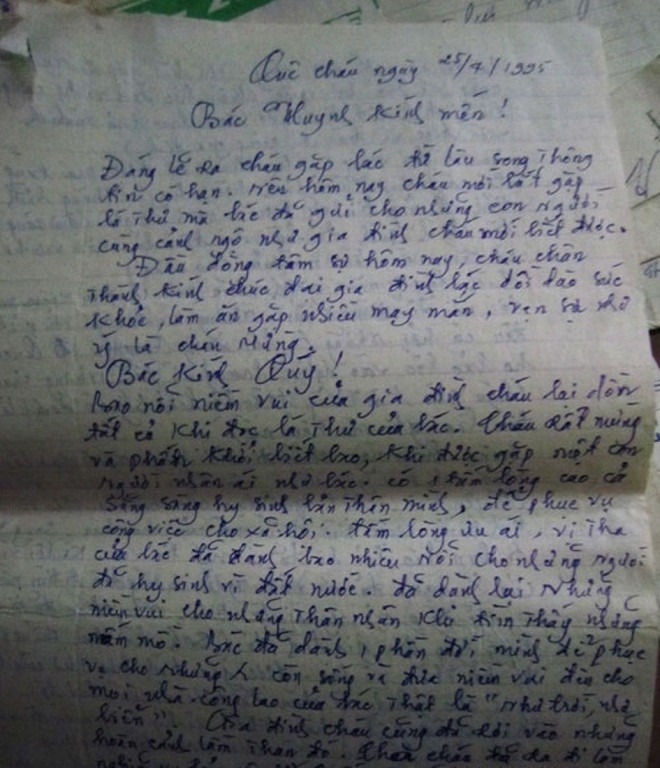 Quê cháu ngày 25/4/1995
Bác Huỳnh kính mến!
Đáng lẽ ra cháu gặp bác từ lâu song thông
tin có hạn. nên hôm nay cháu mới bắt gặp
lá thư mà bác đã gửi cho những con người
cùng cảnh ngộ như gia đình cháu mới biết được.
Đầu dòng tâm sự hôm nay, cháu chân
thành kính chúc đại gia đình bác dồi dào sức
khỏe, làm ăn gặp nhiều may mắn, vạn sự như
ý là cháu mừng.
Bác Kính Quý!
bao nỗi niềm vui của gia đình cháu lại dồn
tất cả khi đọc lá thư của bác. Cháu rất mừng
và phấn khởi biết bao, khi được gặp một con
người nhân ái như bác. có 1 tấm lòng cao cả
sẵng sàng hy sinh bản thân mình, để phục vụ
công việc cho xã hội. tấm lòng ưu ái, vị tha
của bác đã dành bao nhiêu rồi cho những người
đã hy sinh vì đất nước. đã dành lại những
niềm vui cho những thân nhân khi tìm thấy những
nấm mồ. Bác đã dành 1 phần đời mình để phục
vụ cho những còn sống và đưa niềm vui đến cho
mọi nhà. công lao của bác thật là "như trời, như
biển". Gia đình cháu cũng đã rơi vào những
hoàn cảnh lầm than đó. cháu đã ra đi làm